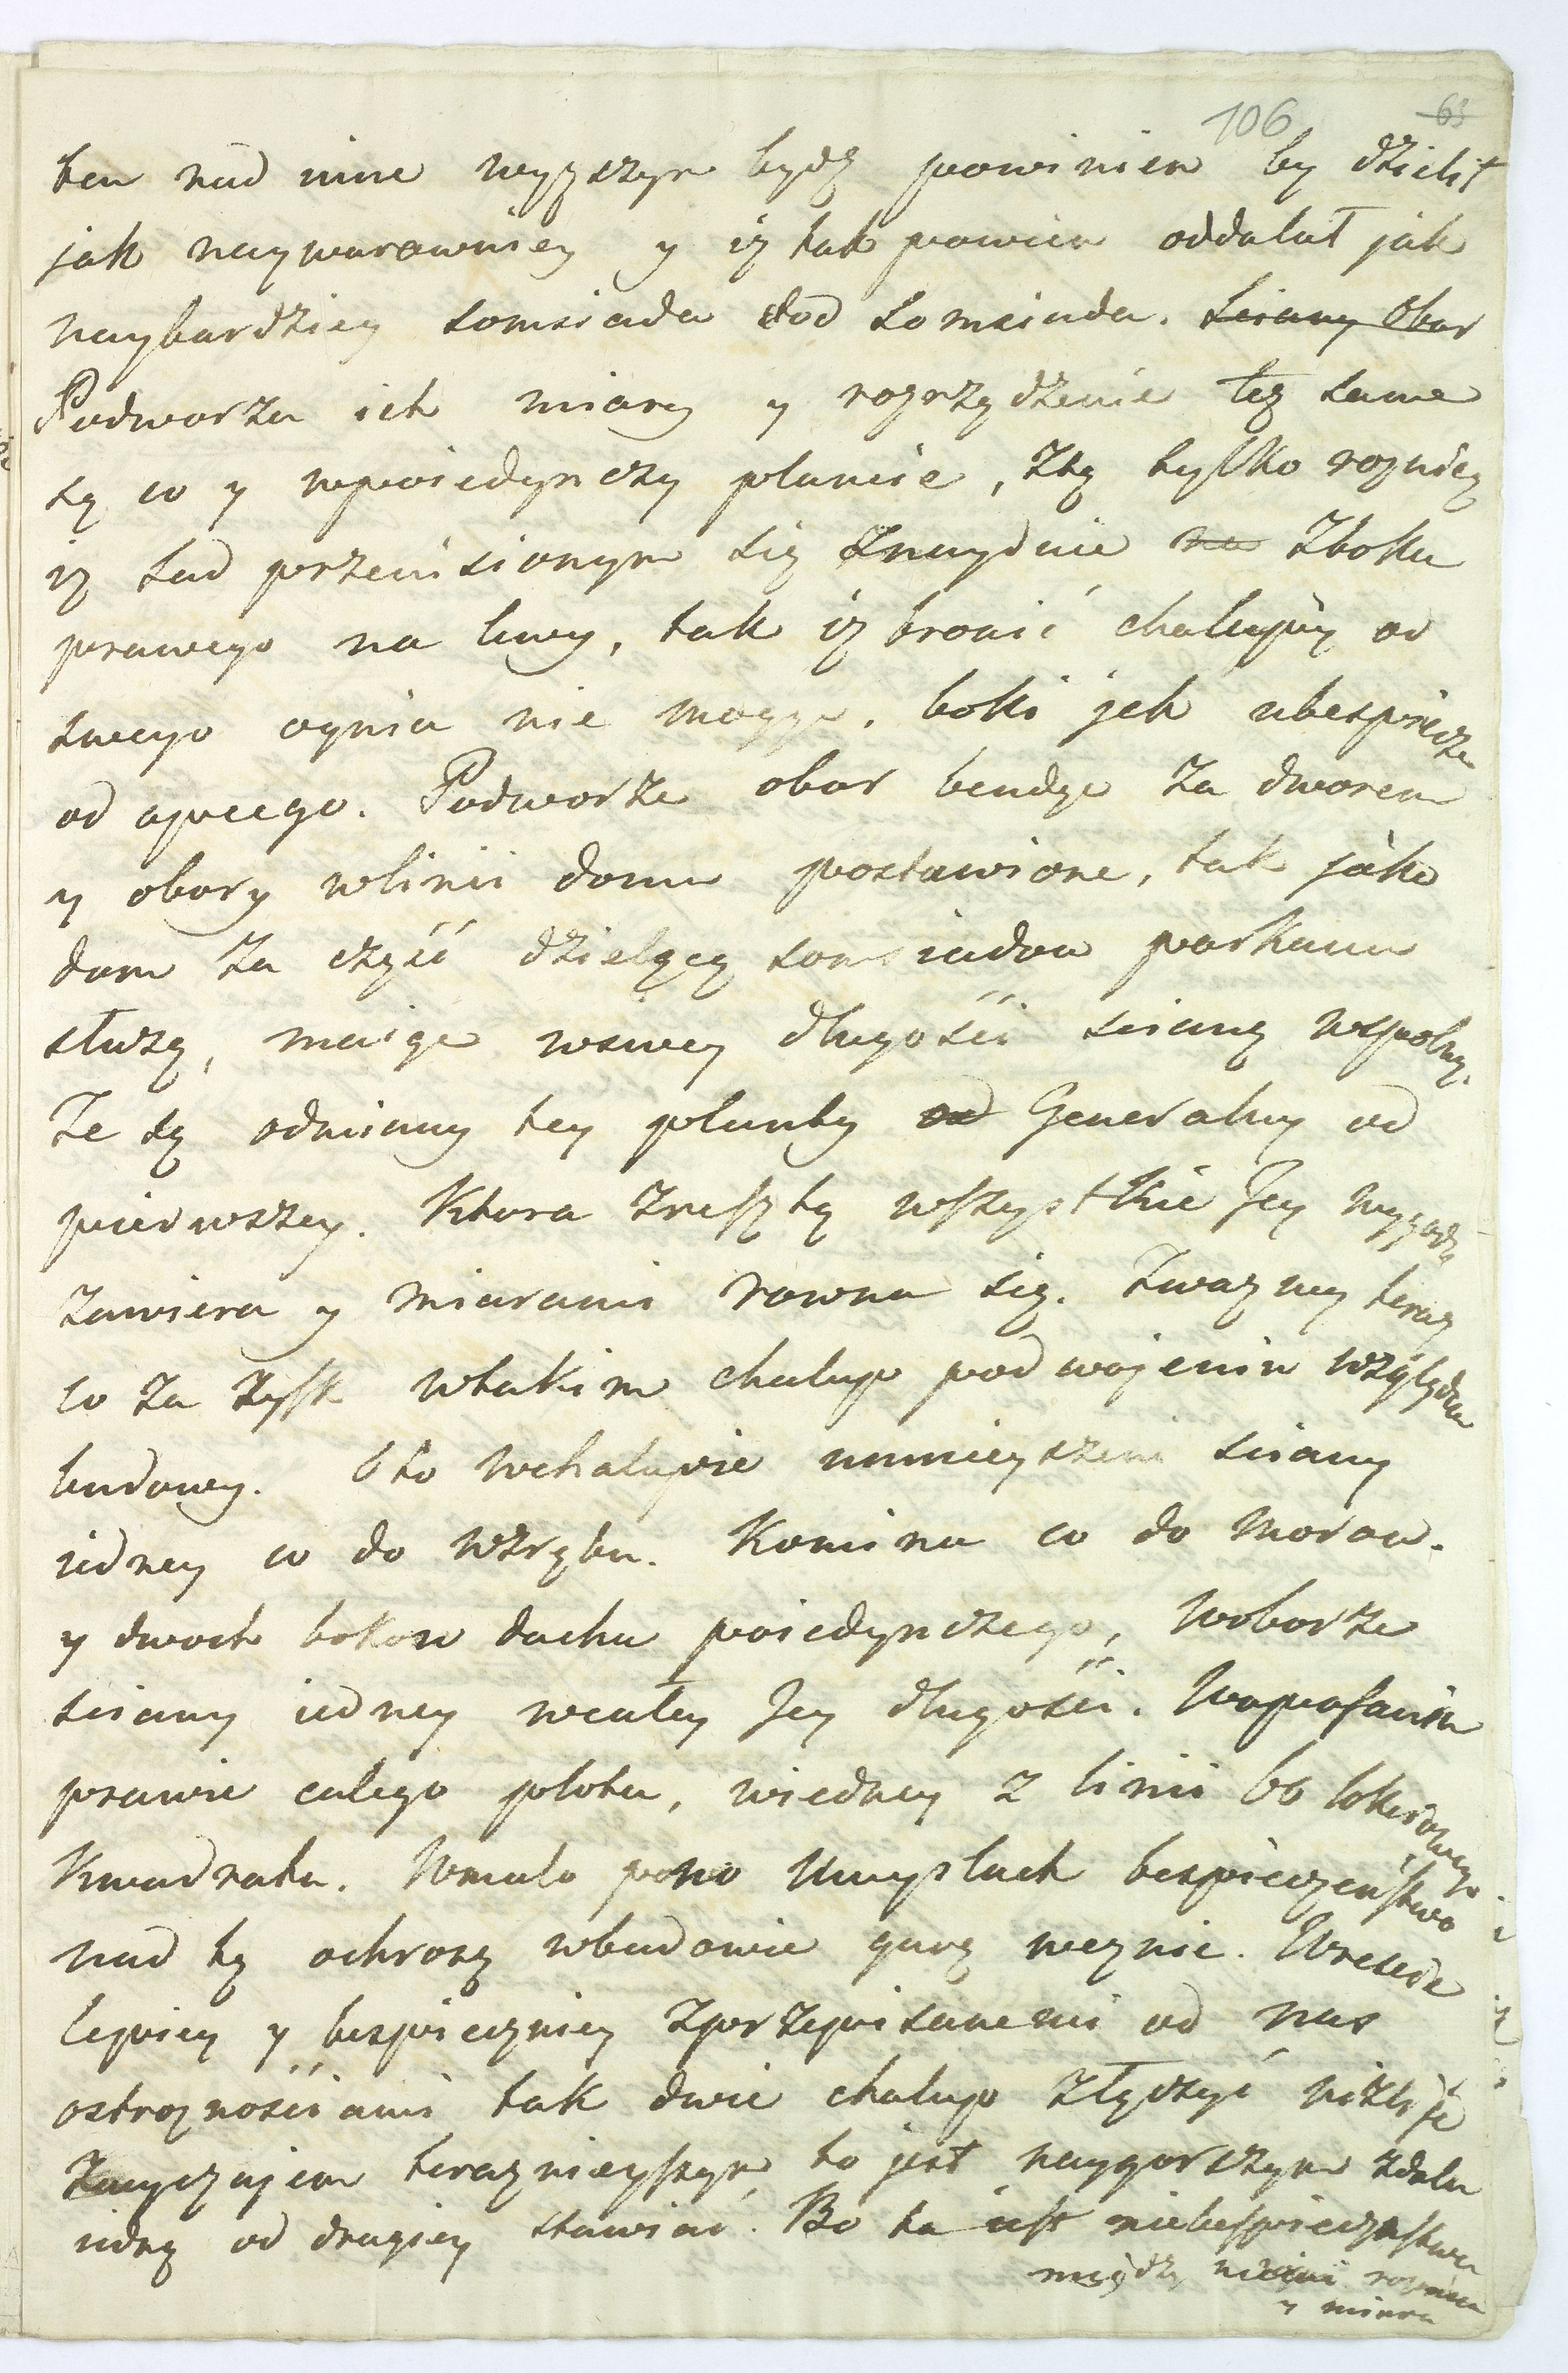 106 63
ten nad inne wyzszym bydz powinien by dzielił
jak nayparowniey y iz tak powiem oddalał jak
naybardziey somsiada od somsiada. Sciany Obor
Podworza ich miary y rozrządzenie też same
są co y wpoiedynczy planie, ztą tylko roznicą
iz sad przeniesionym się znaydnie na zboku
prawego na lewy, tak iz bronić chalupy od
swego ognia nie mogąc. boki jch ubespiecza
od opcego. Podworze obor bendąc za dworem
y obory wlinii domu postawione, tak jako
dom za część dzielącą somsiadow parkanu
służą, maiąc wswey długości scianę wspolną.
Te są odmiany tey planty od Generalny od
pierwszey. Ktora zresztą wszystkie Jey wygody
zawiera y miarami rowna się. Zwazmy teraz
co za zysk wtakim chalup podwojeniu względem
budowy. Oto wchalupie umnieyszeni sciany
iedney co do wzrębu. Komina co do
y dwoch bokow dachu poiedynczego, woborze
sciany iedney wcałey Jey długości. Woprosaniu
prawie calego plotu, wiedney z linii 60 lokciowego
Kwadratu. Wmalo pono Umyslach bespieczeństwo
nad tą ochroną wbudowie gurę wezmie. Wreście
lepiey y bespieczniey zprzepisanemi od nas
ostroznościami tak dwie chalup złączyć nizli je
zwyczajem teraznieyszym, to jest naygorszym zdala
iedną od drugiey stawiać. Bo ta jest niebespieczeństwa
między niemi roznica
y miara